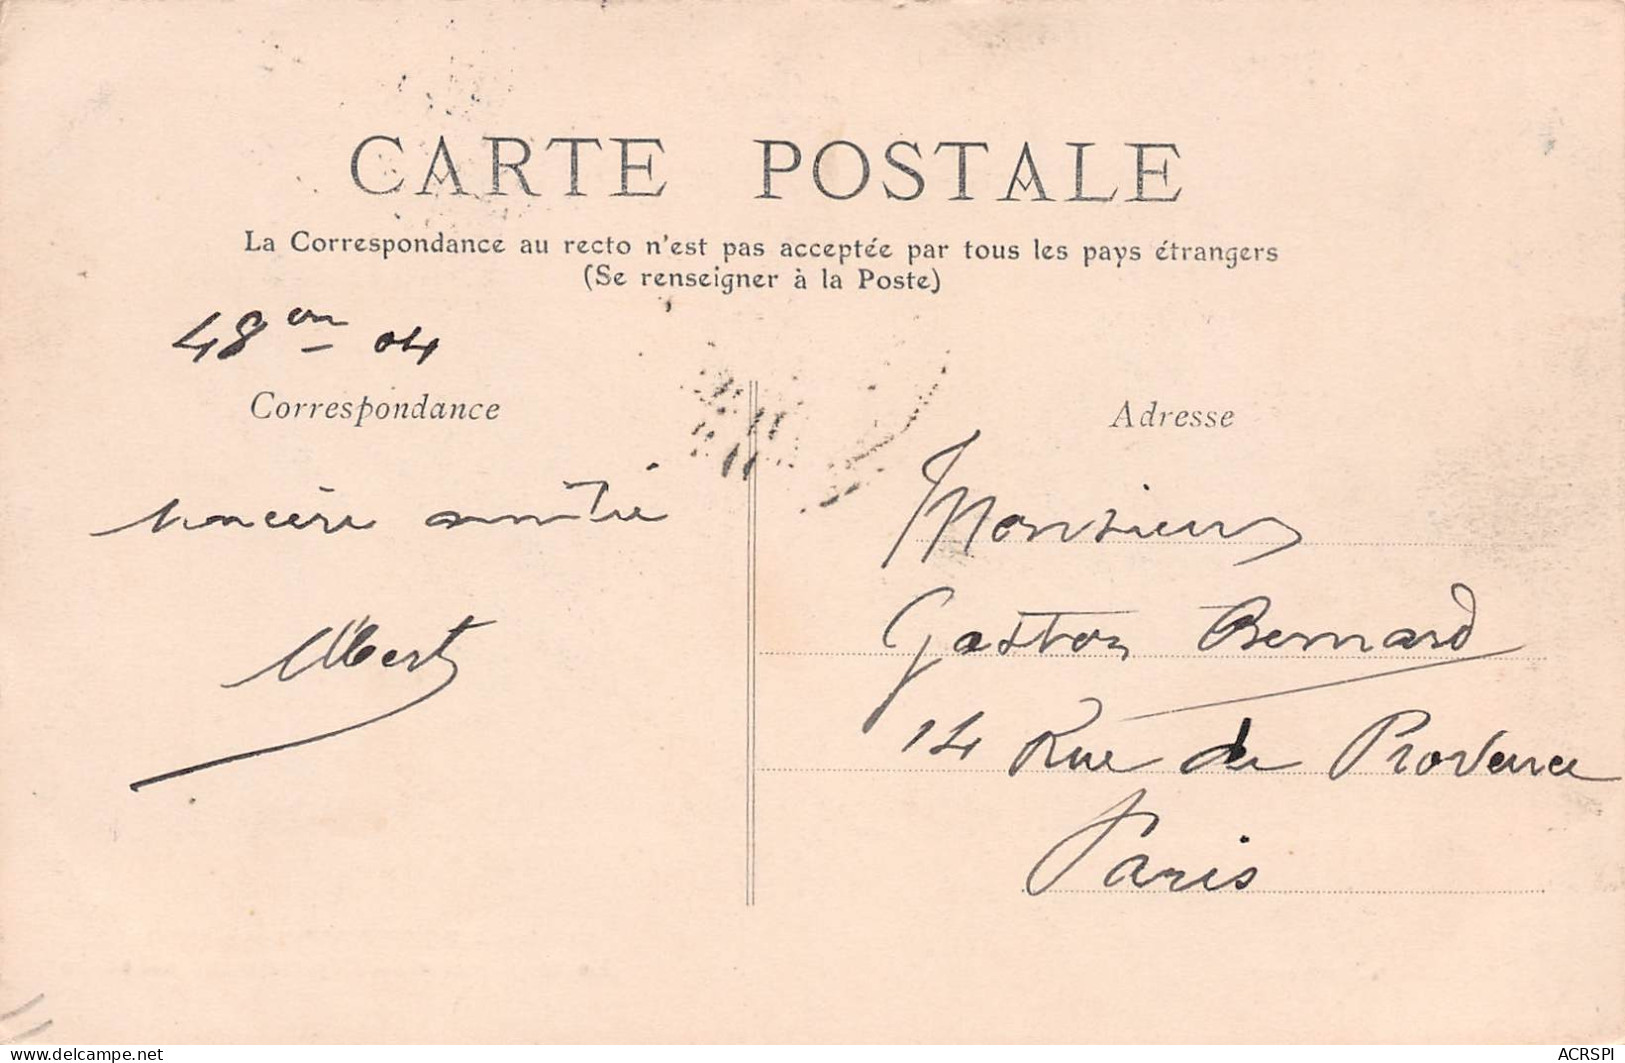 CARTE POSTALE
La Correspondance au recto n'est pas acceptée par tous les pays étrangers
(Se renseigner à la Poste)
04
Correspondance
sincère amitié
Albert
Adresse
Monsieur
Gaston Bernard
14 Rue de Provence
Paris
ACRSPI
https://www.delcampe.net